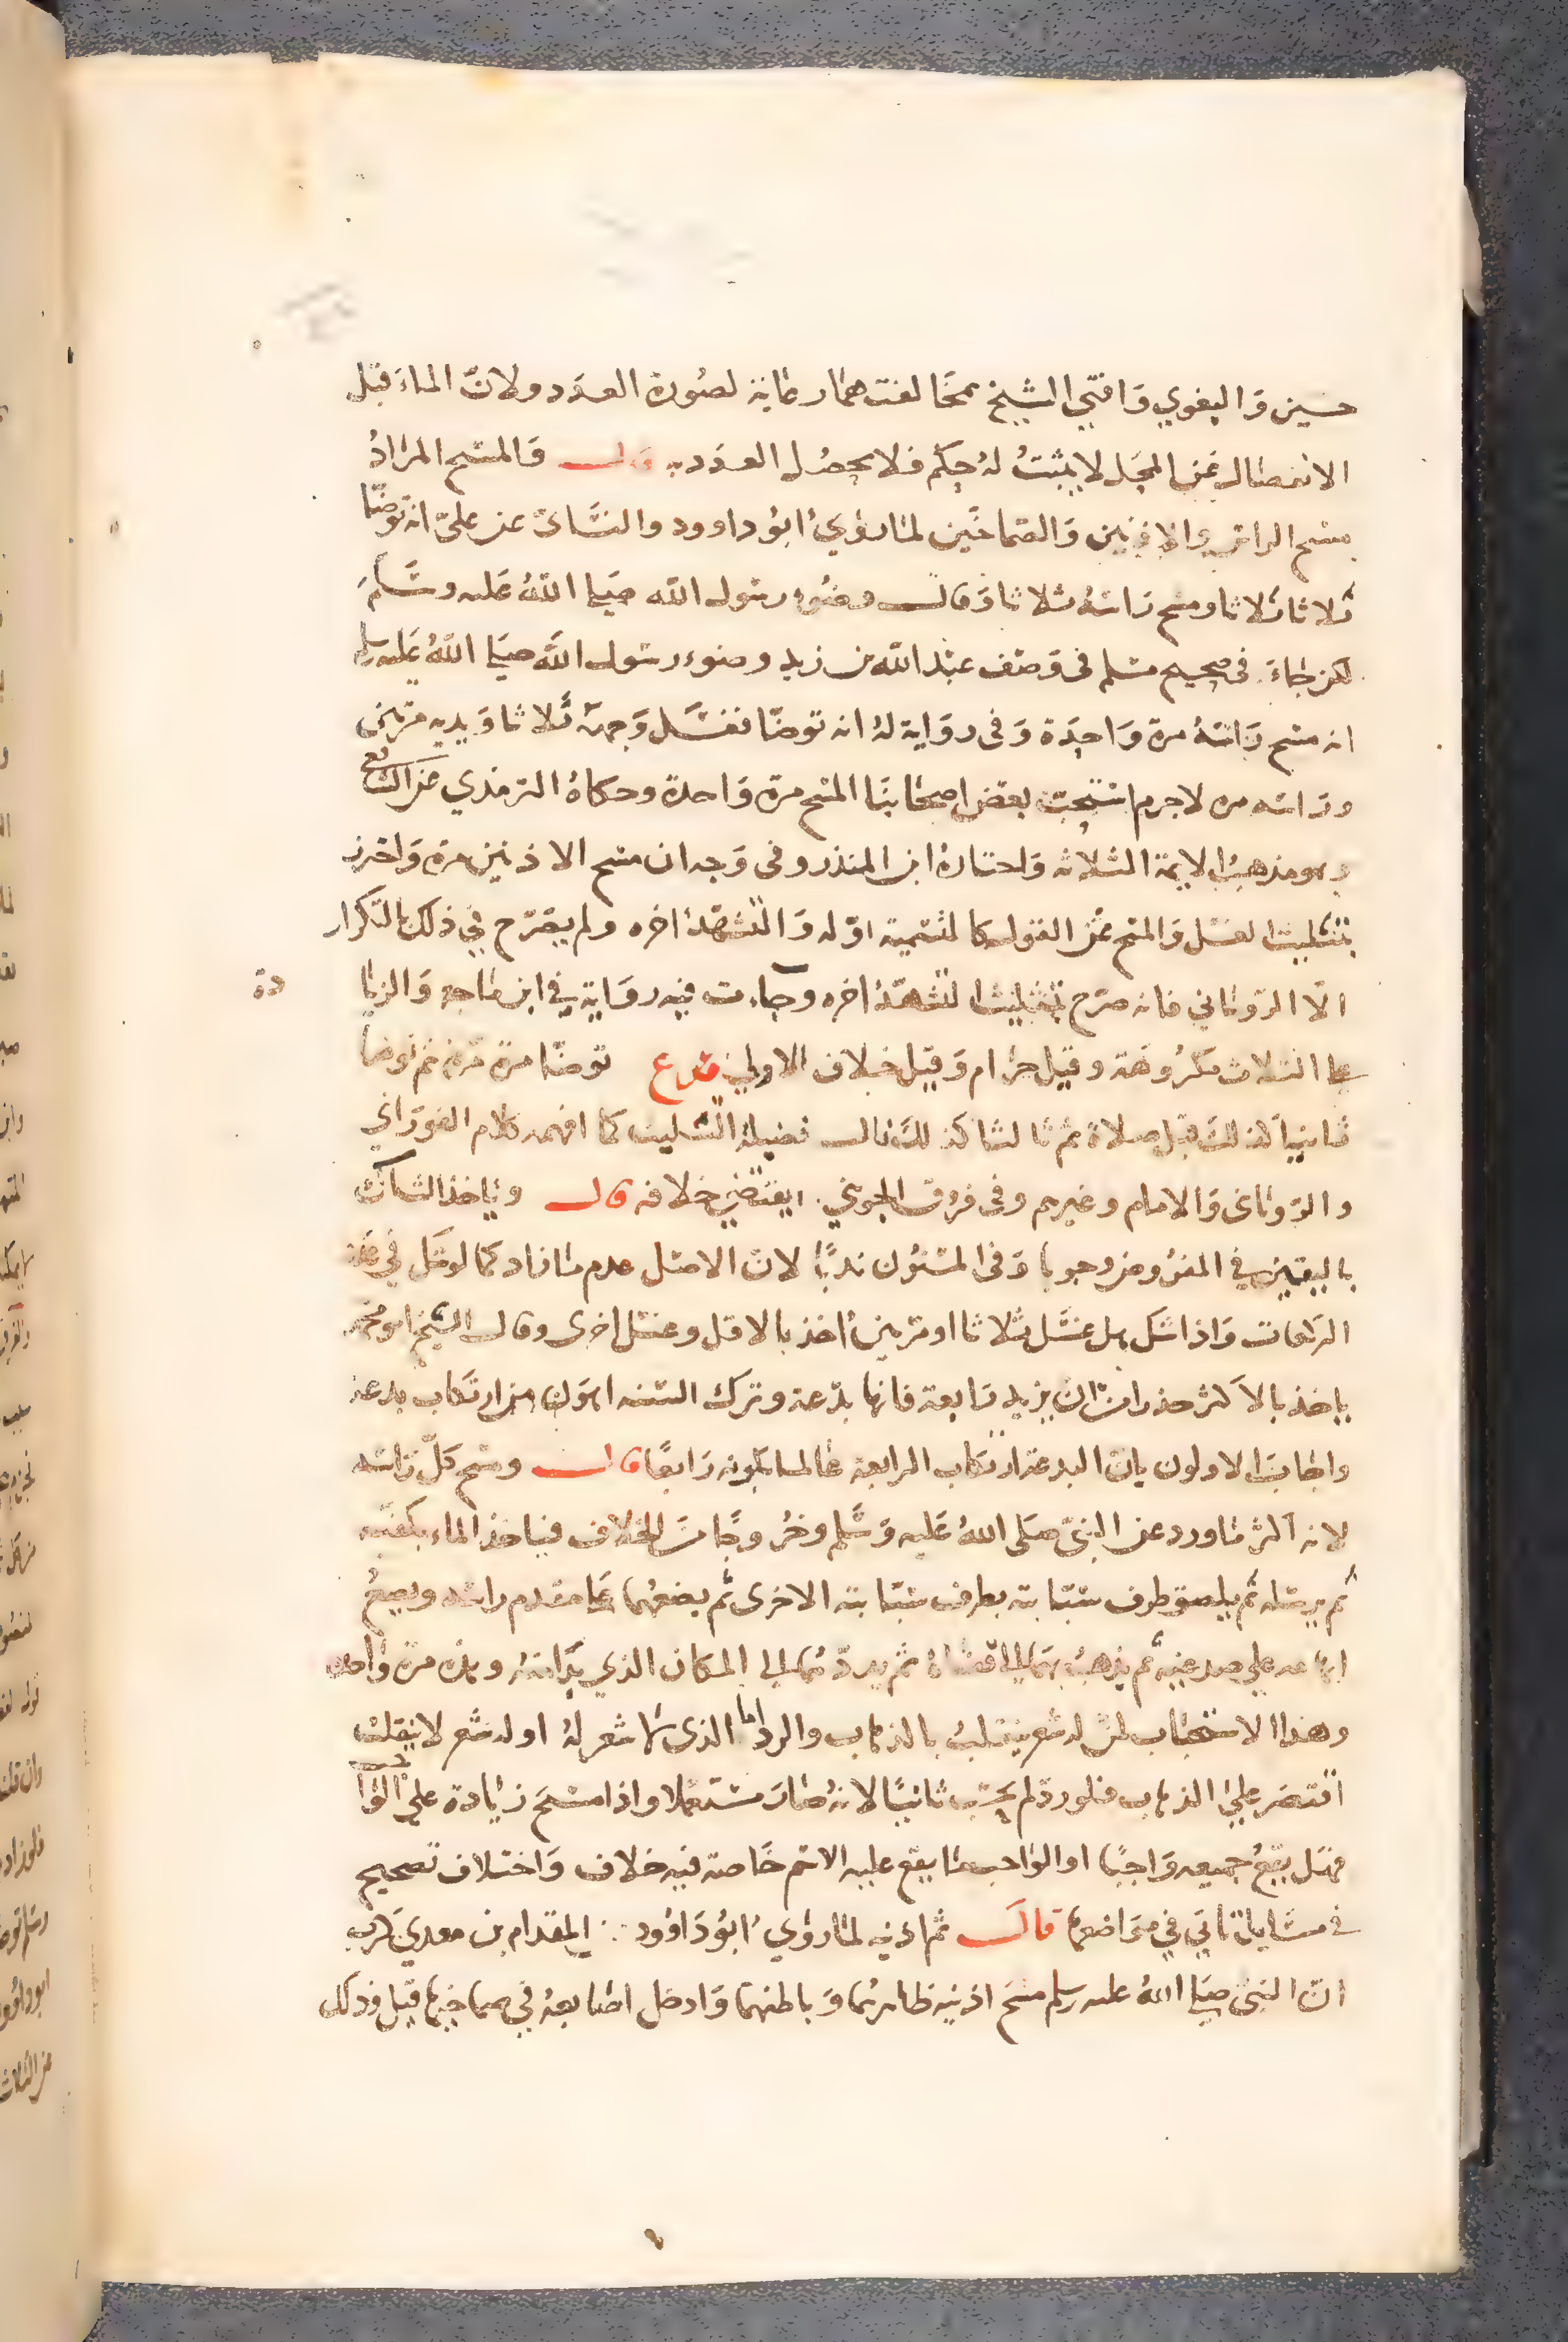 حسين وَالبغوي وَافتي الشيخ بمخالفتهما رعاية لصُورة العدَد ولانّ الماءَ قبل
الانفصال عَن المحَل لا يثبتُ لهُ حكم فلا يحصُل العدَد قال وَالمسح المرادُ
مسح الراس والاذنين وَالصّماخَين لما روَي ابوُ داوود والنسَائ عن عليّ انه توضّا
ثلاثا ثلاثا ومسح رَاسهُ ثلاثا وَقال وضوُء رسَول الله صَلى اللهُ عَليه وسَلمَ
لكن جَاءَ في صَحيح مسَلم في وَصَف عبْد الله بن زيد وضوء رسَول اللهَ صَلي اللهُ عَليه وسلم
انه مسَح رَاسَهُ مرة وَاحِدَة وَفي روَاية لهُ انه توضّا فغسَل وَجهَهُ ثلاثا وَيديه مرّتين
ورَاسَه مره لاجرم استحَبّ بعَض اصحَابنَا المسَح مرة وَاحدة وحكاهُ الترمذي عن الشافعي
وهو مذهبُ الايمة الثلاثه وَاختارهُ ابن المنذر وفي وَجه ان مسَح الاذنين مرة وَاحترز
بتثليث الغسَل وَالمسَح عَن القول كالتسَمية اوّله وَالتشهّد اخره ولم يصَرّح في ذلك بالتكرار
الّا الرّوياني فانه صَرّح بتثليث التشهّد اخره وجَاءت فيه روَاية في ابن ماجه وَالزيا
دة
علي الثلاث مَكرُوهَة وقيل حرَام وَقيل خلاف الاولي فرع توضّا مرة مرة ثم توضا
ثانيا كذلك قبل صلاة ثم ثالثا كذلك نال فضيلة التثليث كما افهمه كلام الفورَاني
والرّوياني وَالامام وغيرهم وفي فرُوق الجويني يقتضي خلافه قال وياخذ الشاك
باليقين في المفرُوض وجوبا وَفي المسَنوُن ندبًا لان الاصَل عدم ما زاد كما لو شك في عدد
الركعات وَاذا شك هل غسَل ثلاثا او مرتين اخذ بالاقل وغسَل اخرى وقال الشيخ ابو محمد
ياخذ بالاَكثر حذرا من ان يزيد رَابعة فانها بدّعة وترك السَنه اهون من ارتكاب بدعة
واجابَ الاولون بانّ البدعة ارتكاب الرابعة عالما بكونه رَابعًا قال ومسَح كلّ رَاسَه
لانه اكثر ما ورد عن النبيّ صَلى اللهُ عَليه وَسَلم وخرُوجًا منَ الخلاف فياخذ الماء بكفيّه
ثم يرسَله ثم يلصق طرف سَبّابته بطرف سَبّابته الاخرى ثم يضعُهما عَلى مقدم راسَه ويضعُ
ابهاميه علي صدغيه ثم يذهبُ بهما الي قفاهُ ثم يردّهما الي المكان الذي بَدا منهُ وهذه مرة واحدة
وهذا الاستحبَاب لمن له شعر ينقلبُ بالذهاب والرد اما الذى لا شعر لهُ او له شعر لا ينقلبُ
اقتصَر عليَ الذهاب فلو ردّ لم يحسَب ثانيًا لانهُ صَارَ مسَتعملا واذا مسَحَ زيادة علي الواجب
فهَل يقعُ جميعه وَاجبًا او الواجب ما يقع عليه الاسَم خَاصة فيه خلاف وَاختلاف تصحيح
في مسَايل تاتي في موَاضعها قالَ ثم اذنيه لما روَي ابوُ دَاوُود المقدام بن معدي كرب
انّ النبيّ صَلي اللهُ عليه وسلم مسَحَ اذنيه ظاهرهما وَباطنهما وَادخل اصَابعهُ في صماخيه قيل وذلك